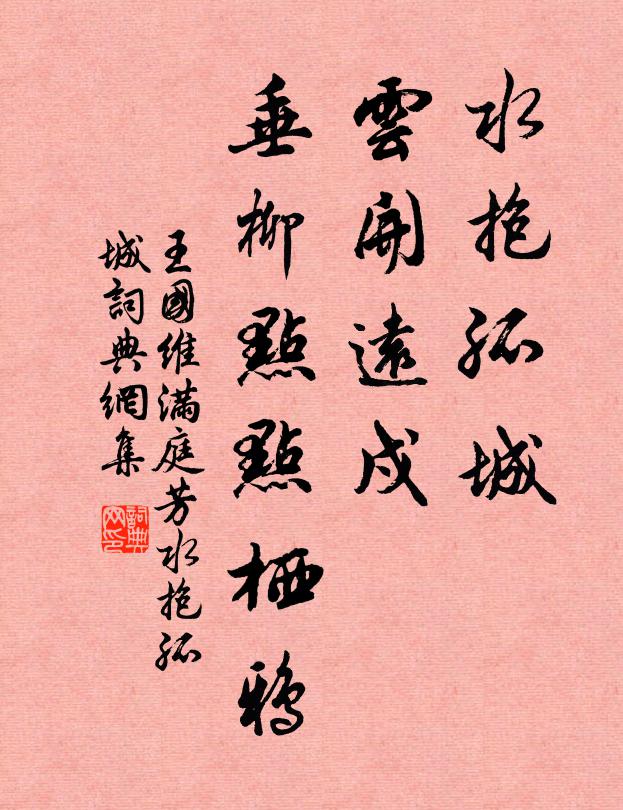 水抱孤城
雲開遠戍
垂柳點點栖鴉
王國維滿庭芳水抱孤
城詞典網集
詞典
网印